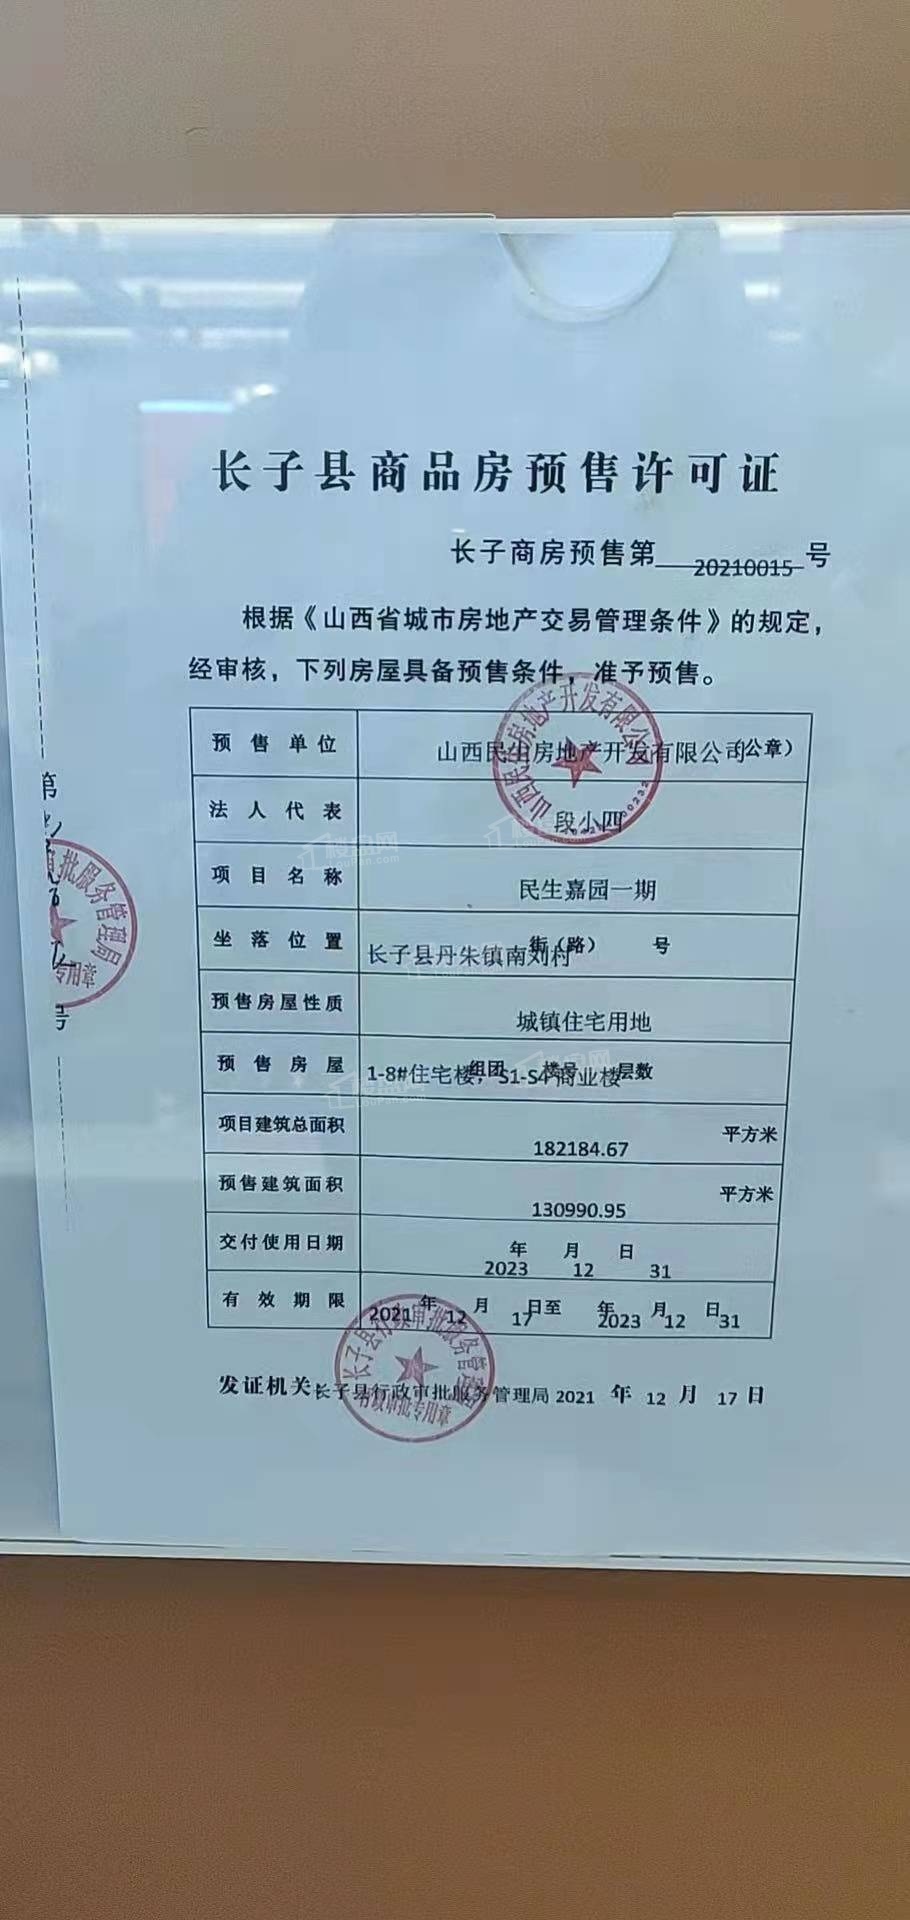 长子县商品房预售许可证
长子商房预售第 20210015 号
根据《山西省城市房地产交易管理条件》的规定，
经审核，下列房屋具备预售条件，准予预售。
预售单位 山西民生房地产开发有限公司（公章）
法人代表 段小四
项目名称 民生嘉园一期
坐落位置 长子县丹朱镇南刘村 街（路） 号
预售房屋性质 城镇住宅用地
预售房屋 1-8#住宅楼，S1-S4商业楼 组团 楼号 层数
项目建筑总面积 182184.67 平方米
预售建筑面积 130990.95 平方米
交付使用日期 2023 年 12 月 31 日
有效期限 2021 年 12 月 17 日至 2023 年 12 月 31 日
发证机关：长子县行政审批服务管理局 2021 年 12 月 17 日
山西民生房地产开发有限公司
长子县行政审批服务管理局
行政审批专用章
第
号
审批服务管理局
专用章
楼盘网
loupan.com